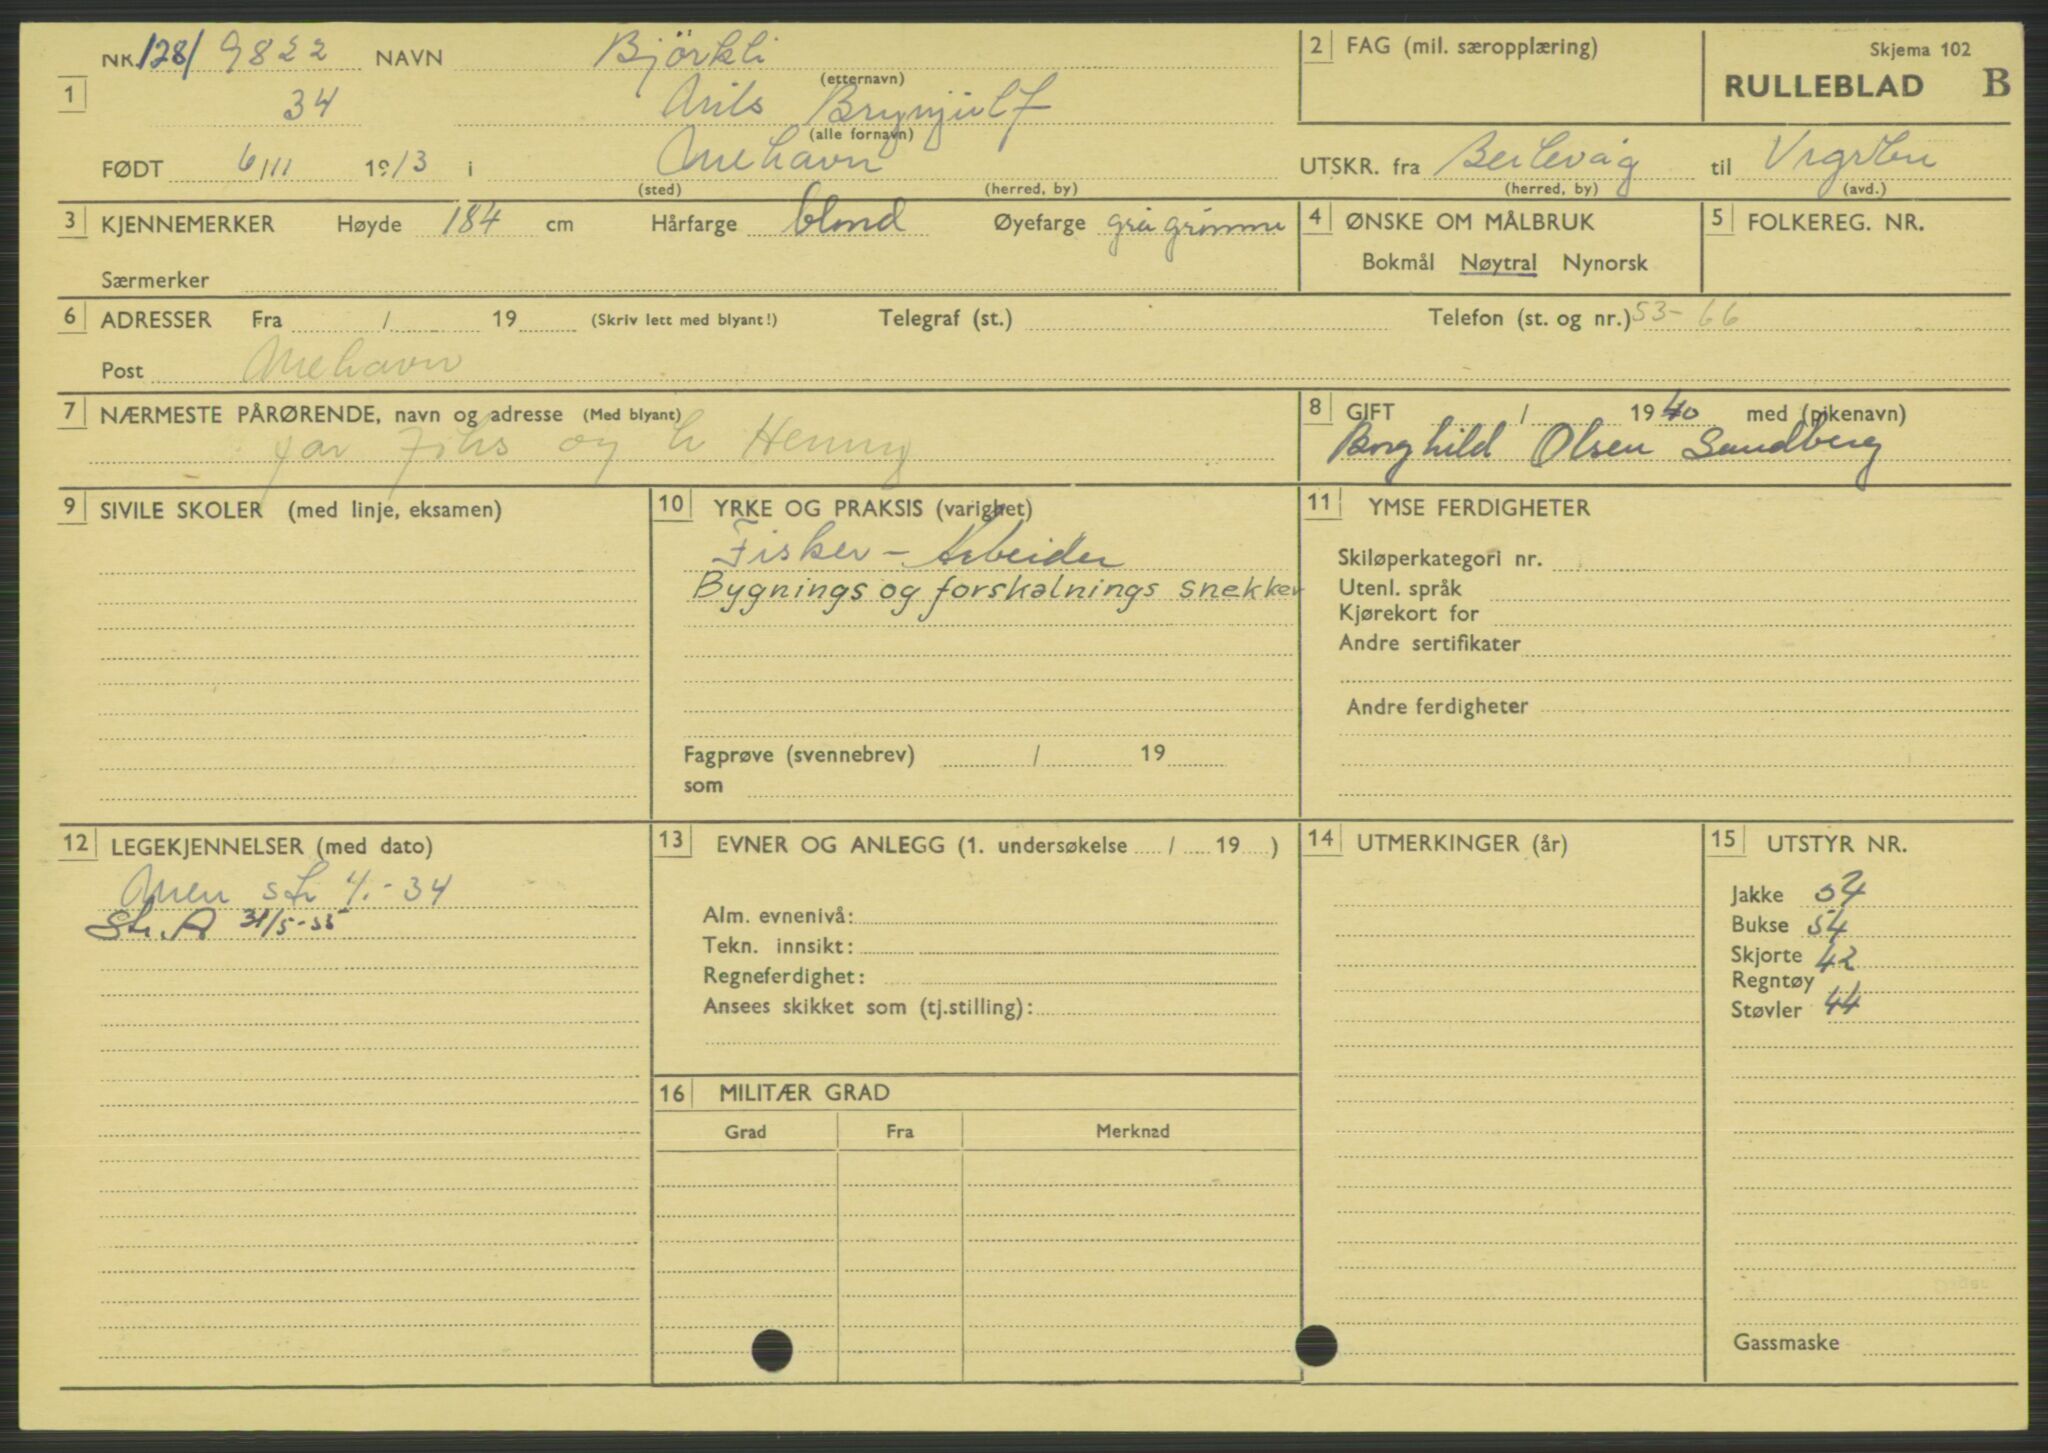 NK. 128/ 9822 NAVN Björkli
(etternavn)
1 34 Nils Brynjulf
(alle fornavn)
FØDT 6/11 1913 i Mehavn
(sted) (herred, by)
2 FAG (mil. særopplæring)
Skjema 102
RULLEBLAD B
UTSKR. fra Berlevåg til
(herred, by) (avd.)
3 KJENNEMERKER Høyde 184 cm Hårfarge blond Øyefarge grå grønne
Særmerker
4 ØNSKE OM MÅLBRUK
Bokmål Nøytral Nynorsk
5 FOLKEREG. NR.
6 ADRESSER Fra / 19 (Skriv lett med blyant!) Telegraf (st.) Telefon (st. og nr.) 53-66
Post Mehavn
7 NÆRMESTE PÅRØRENDE, navn og adresse (Med blyant)
far og Henny
8 GIFT / 1940 med (pikenavn)
Borghild Olsen Sandberg
9 SIVILE SKOLER (med linje, eksamen)
10 YRKE OG PRAKSIS (varighet)
Fisker - Arbeider
Bygnings og forskalnings snekker
Fagprøve (svennebrev) / 19
som
11 YMSE FERDIGHETER
Skiløperkategori nr.
Utenl. språk
Kjørekort for
Andre sertifikater
Andre ferdigheter
12 LEGEKJENNELSER (med dato)
str 4.-34
Str. A 31/5-55
13 EVNER OG ANLEGG (1. undersøkelse / 19 )
Alm. evnenivå:
Tekn. innsikt:
Regneferdighet:
Ansees skikket som (tj.stilling):
14 UTMERKINGER (år)
15 UTSTYR NR.
Jakke 54
Bukse 54
Skjorte 42
Regntøy
Støvler 44
Gassmaske
16 MILITÆR GRAD
Grad Fra Merknad